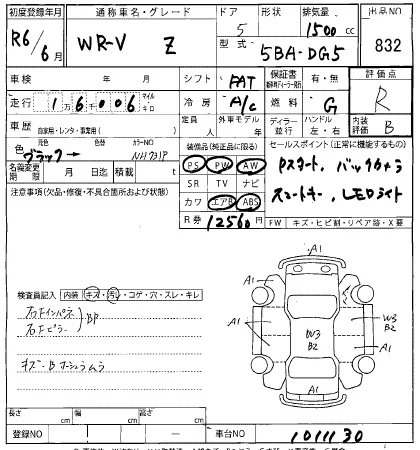 初度登録年月 通称車名・グレード ドア 形状 排気量 出品NO
R6/6月 WR-V Z 5 1500cc 832
型式 5BA-DG5
車検 年 月 シフト FAT 保証書 有・無 評価点
走行 16,006 マイル・キロ 冷房 A/C 燃料 G R
車歴 自家用・レンタ・事業用( ) 定員 人 外車モデル 年 ディーラー・並行 ハンドル 左・右 内装評価 B
色 元色 ブラック → カラーNO NH731P 装備品(純正品に限る) セールスポイント(正常に機能するもの)
名義変更期限 月 日迄 積載 PS PW AW Pスタート、バックカメラ
注意事項(欠品・修復・不具合箇所および状態) SR TV ナビ スマートキー、LEDライト
カワ エアB ABS
R券 12560円 FW キズ・ヒビ割・リペア跡・X要
検査員記入 内装 キズ・汚レ・コゲ・穴・スレ・キレ
右Fインパネ
右Fピラー BP
A1
A1
A1
W3
B2
W3
B2
A1
A1
長さ cm 幅 cm 高さ cm
登録NO 車台NO 1011130